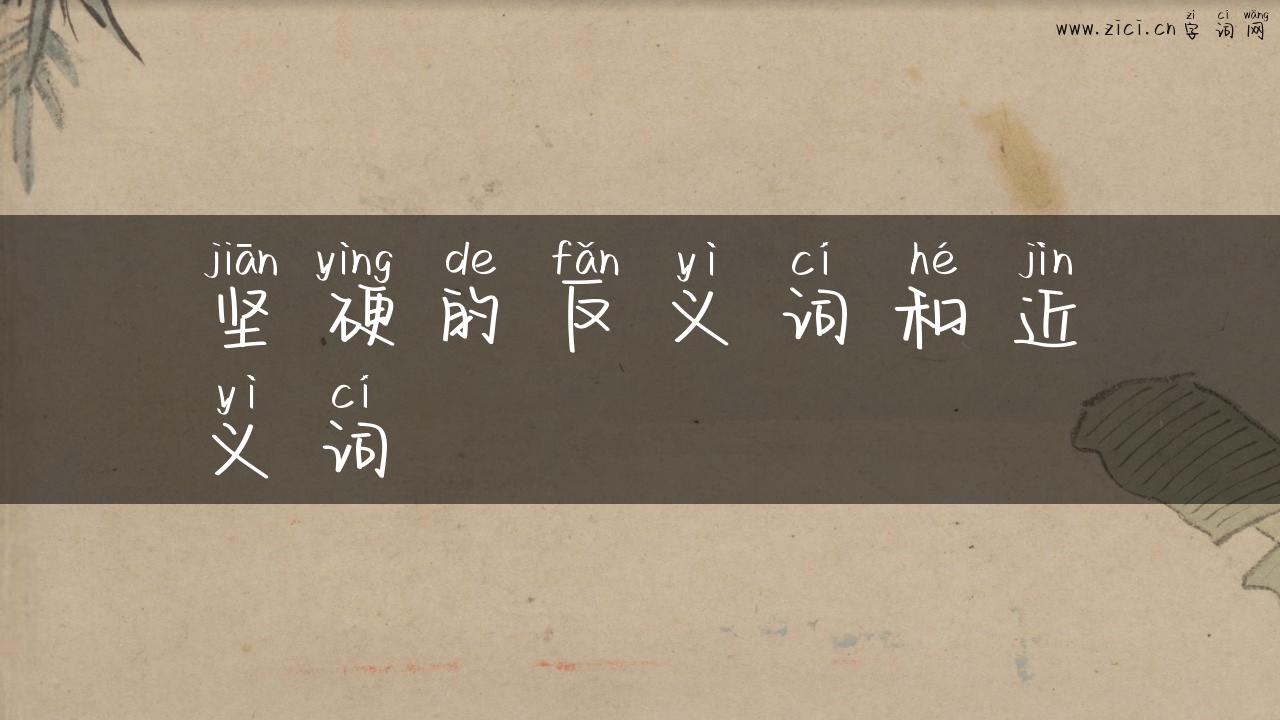 zì cí wǎng
www.zici.cn 字词网
jiān yìng de fǎn yì cí hé jìn
坚硬的反义词和近
yì cí
义词